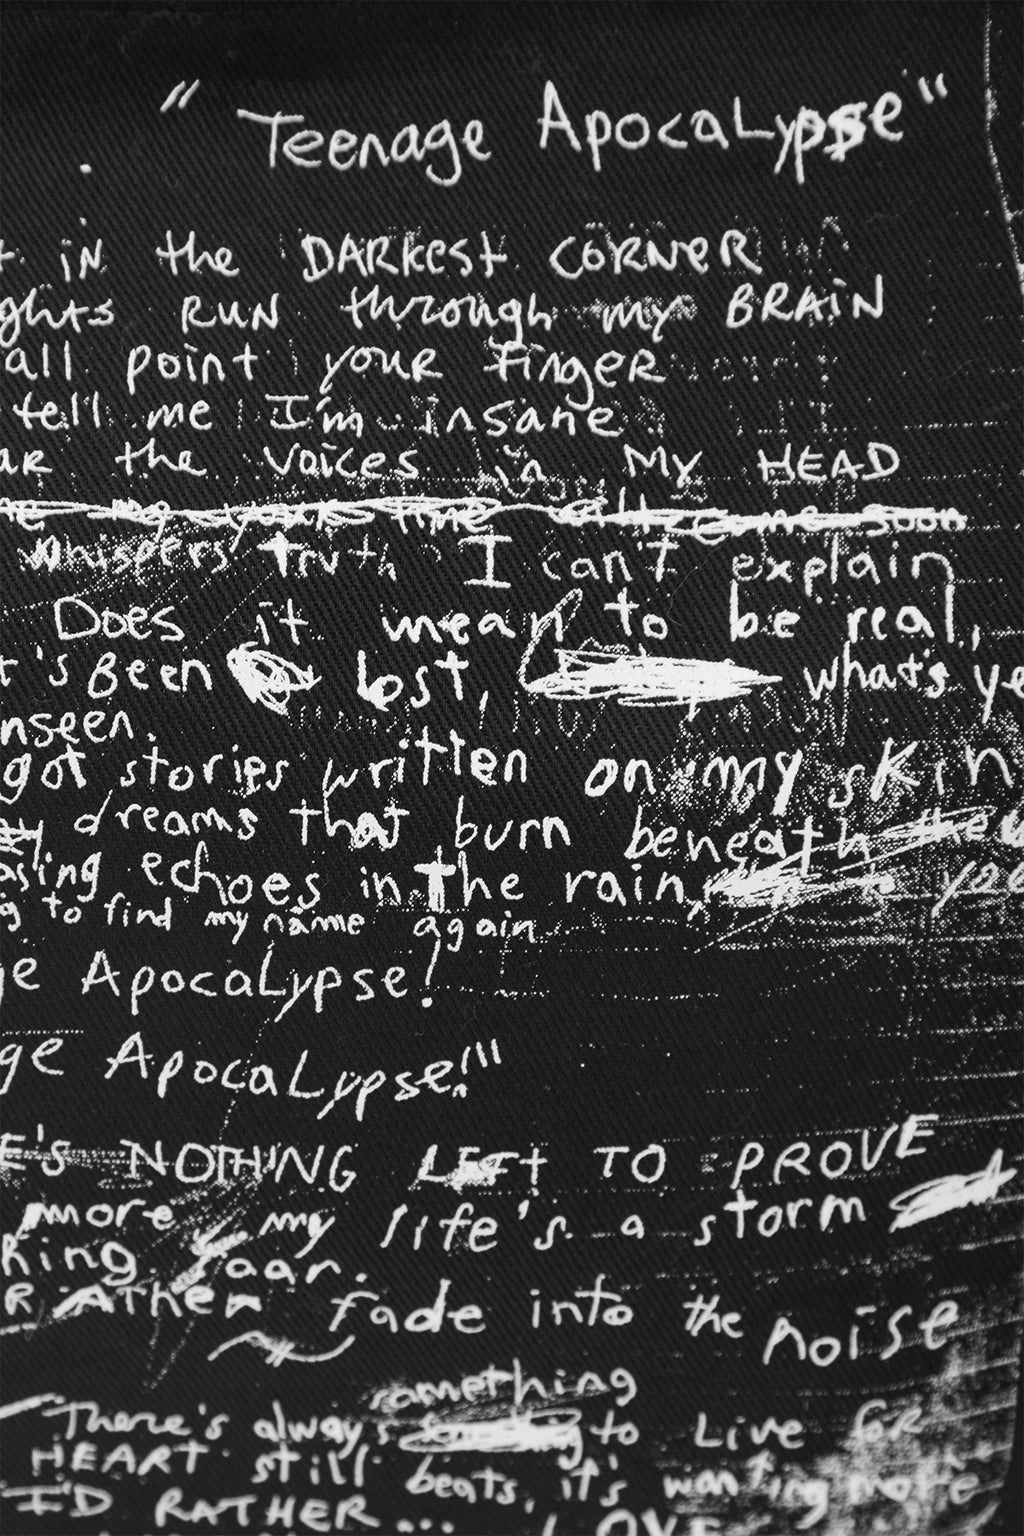 " Teenage Apocalypse "
t in the DARKEST CORNER
ghts RUN through my BRAIN
all point your Finger
tell me I'm insane
ar the voices in MY HEAD
whispers truth I can't explain
Does it mean to be real,
t's Been lost, what's ye
nseen.
got stories written on my skin
dreams that burn beneath the
asing echoes in the rain,
g to find my name again
ge Apocalypse!
ge Apocalypse!"
E'S NOTHING LEFT TO PROVE
more my life's a storm
king
RATHER fade into the noise
something
There's always to Live for
HEART still beats, it's wanting more
I'D RATHER...